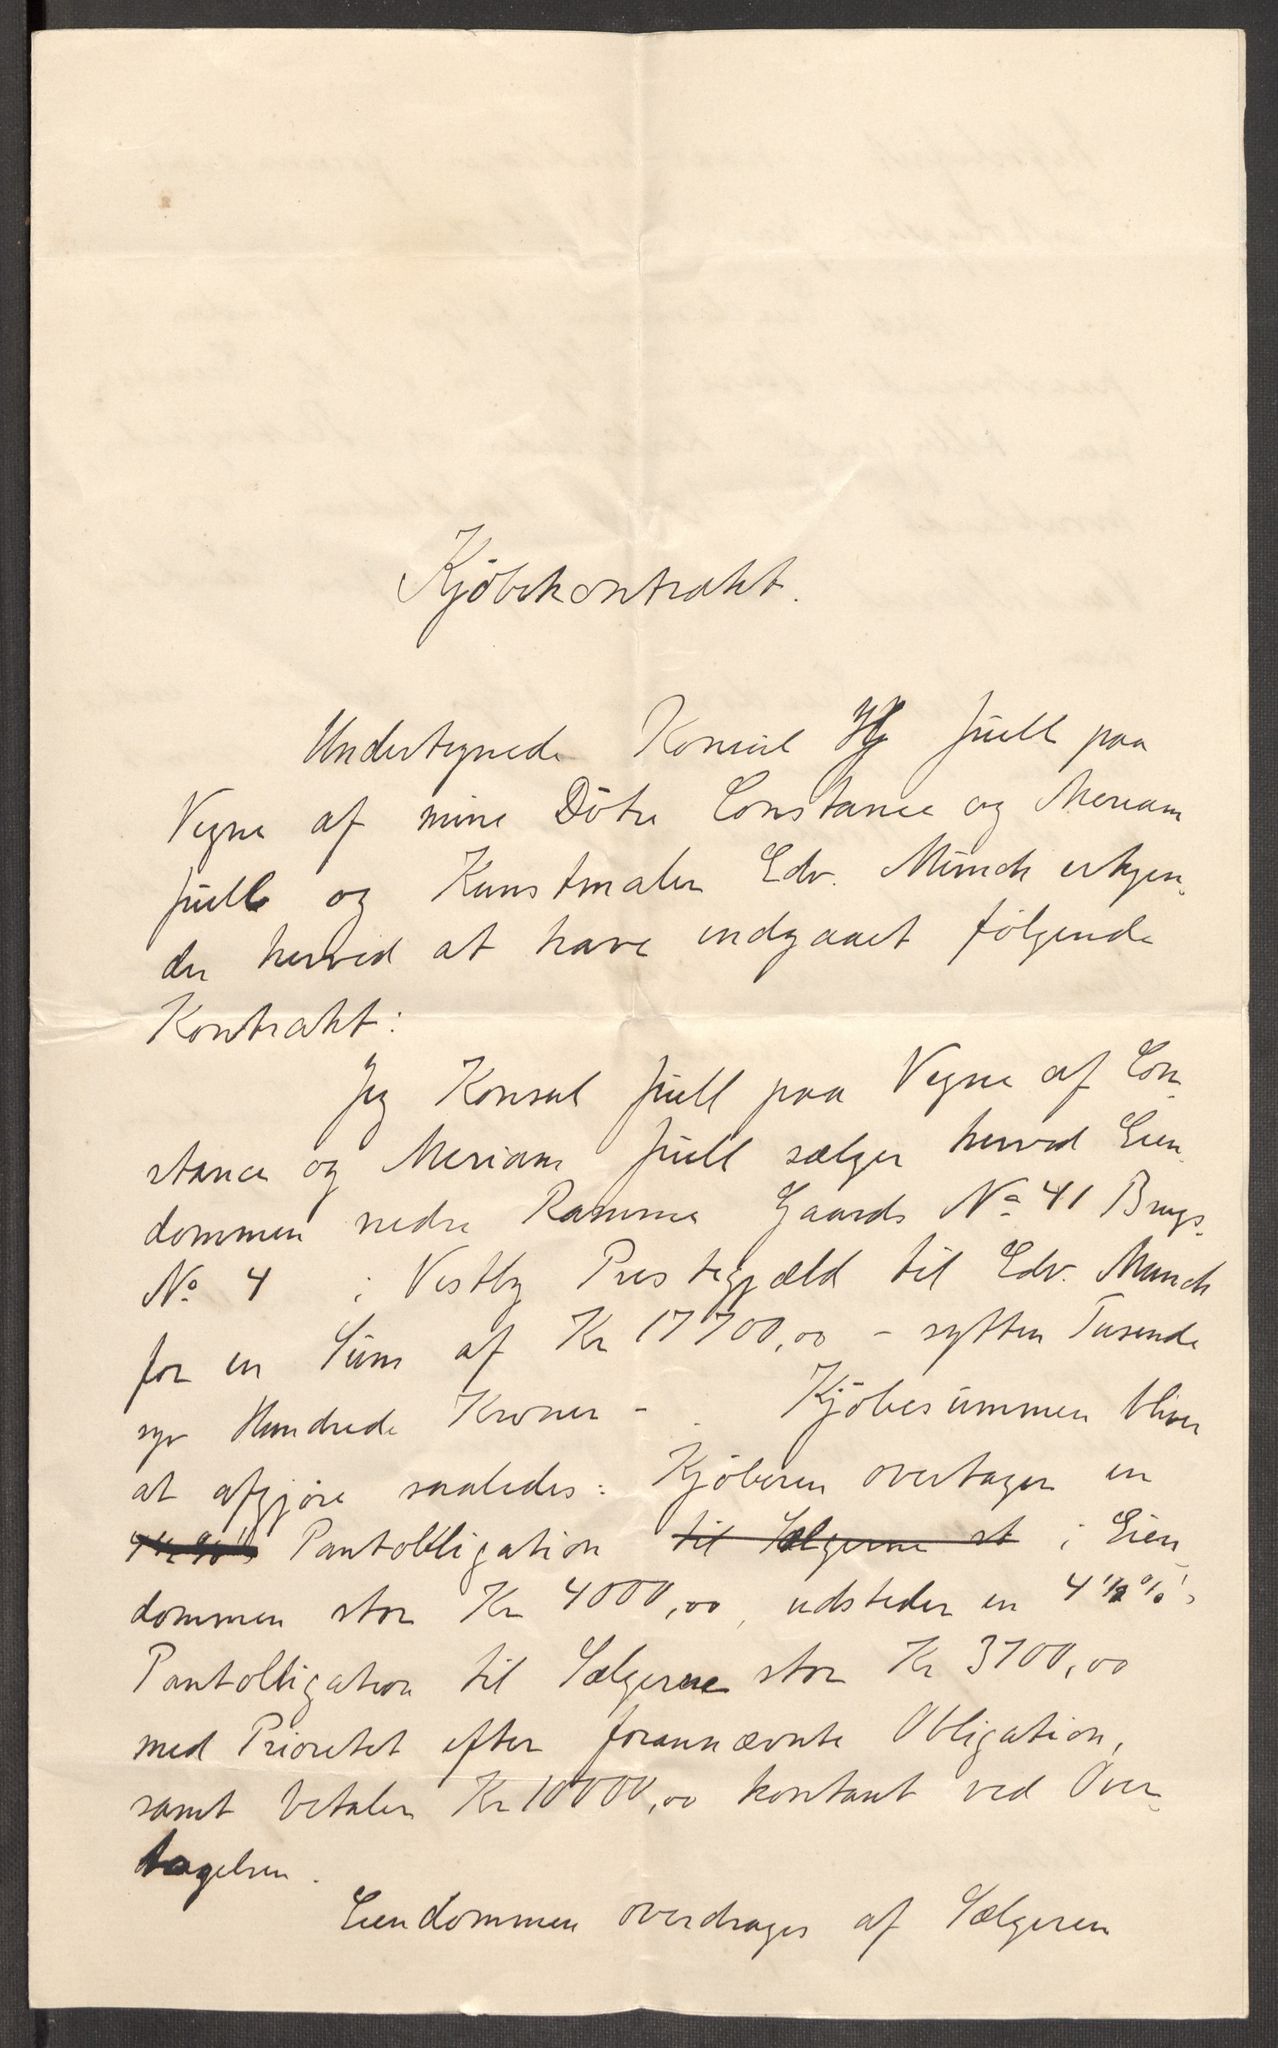 Kjöbekontrakt.
Undertegnede Konsul Juell paa
Vegne af mine Döttre Constance og Meriam
Juell og Kunstmaler Edv. Munch erkjen-
der herved at have indgaaet følgende
Kontrakt:
Jeg Konsul Juell paa Vegne af Con-
stance og Meriam Juell sælger herved Eien-
dommen nedre Ramme Gaards No 41 Brugs-
No 4 i Vestby Prestegjæld til Edv. Munch
for en Sum af Kr 17700,00 – sytten Tusende
syv Hundrede Kroner – . Kjöbesummen bliver
at afgjøre saaledes: Kjöberen overtager en
4½%'s Pantobligation til Sælgerne st i Eien-
dommen stor Kr 4000,00, udsteder en 4½%'s
Pantobligation til Sælgerne stor Kr 3700,00
med Prioretet efter forannævnte Obligation,
samt betaler Kr 10000,00 kontant ved Over-
tagelsen.
Eiendommen overdrages af Sælgeren